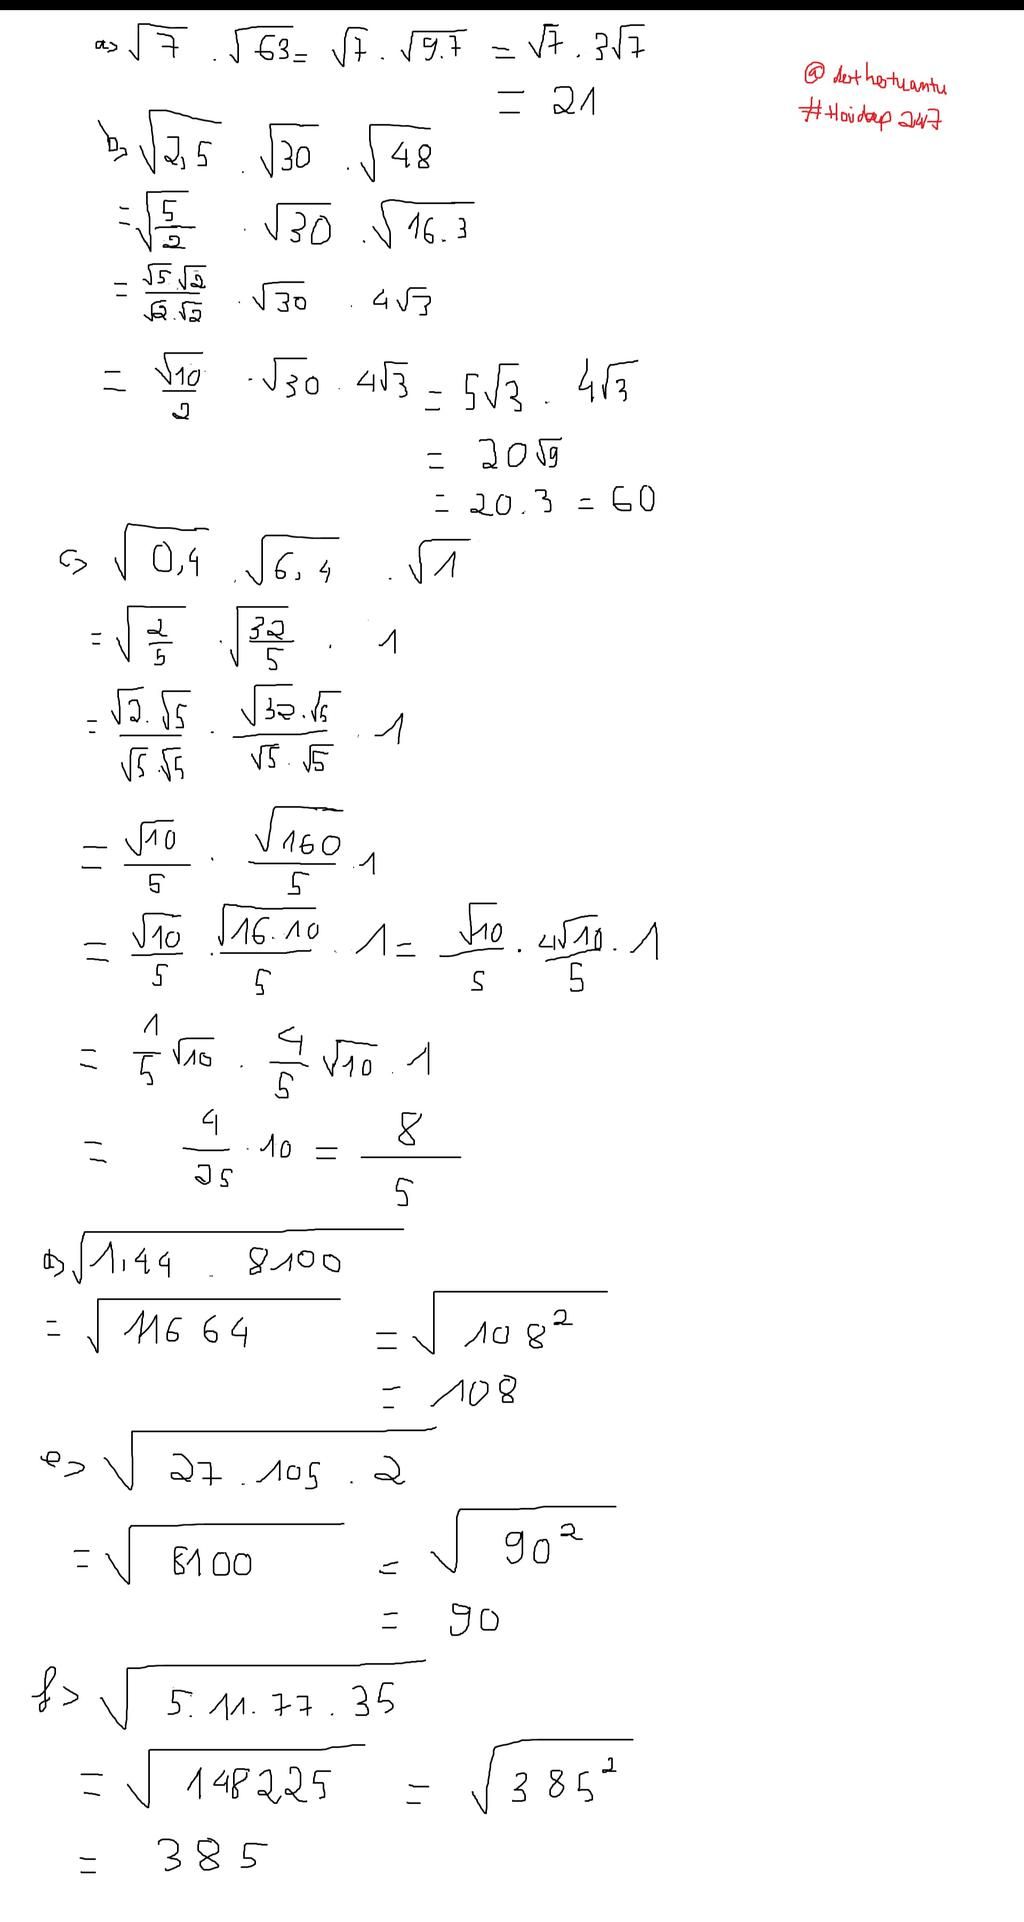 a> √7 . √63 = √7 . √9.7 = √7 . 3√7
= 21
#Hoidap247
b> √2,5 . √30 . √48
= √(5/2) . √30 . √16.3
= (√5.√2)/(√2.√2) . √30 . 4√3
= √10/2 . √30 . 4√3 = 5√3 . 4√3
= 20√9
= 20.3 = 60
c> √0,4 . √6,4 . √1
= √(2/5) . √(32/5) . 1
= (√2.√5)/(√5.√5) . (√32.√5)/(√5.√5) . 1
= √10/5 . √160/5 . 1
= √10/5 . √16.10/5 . 1 = √10/5 . 4√10/5 . 1
= 1/5 √10 . 4/5 √10 . 1
= 4/25 . 10 = 8/5
d> √1,44 . 8100
= √11664 = √108²
= 108
e> √27 . 105 . 2
= √8100 = √90²
= 90
f> √5.11.77.35
= √148225 = √385²
= 385